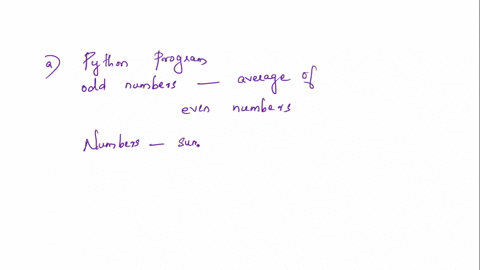 a) Python Program
odd numbers — average of
even numbers
Numbers — sum